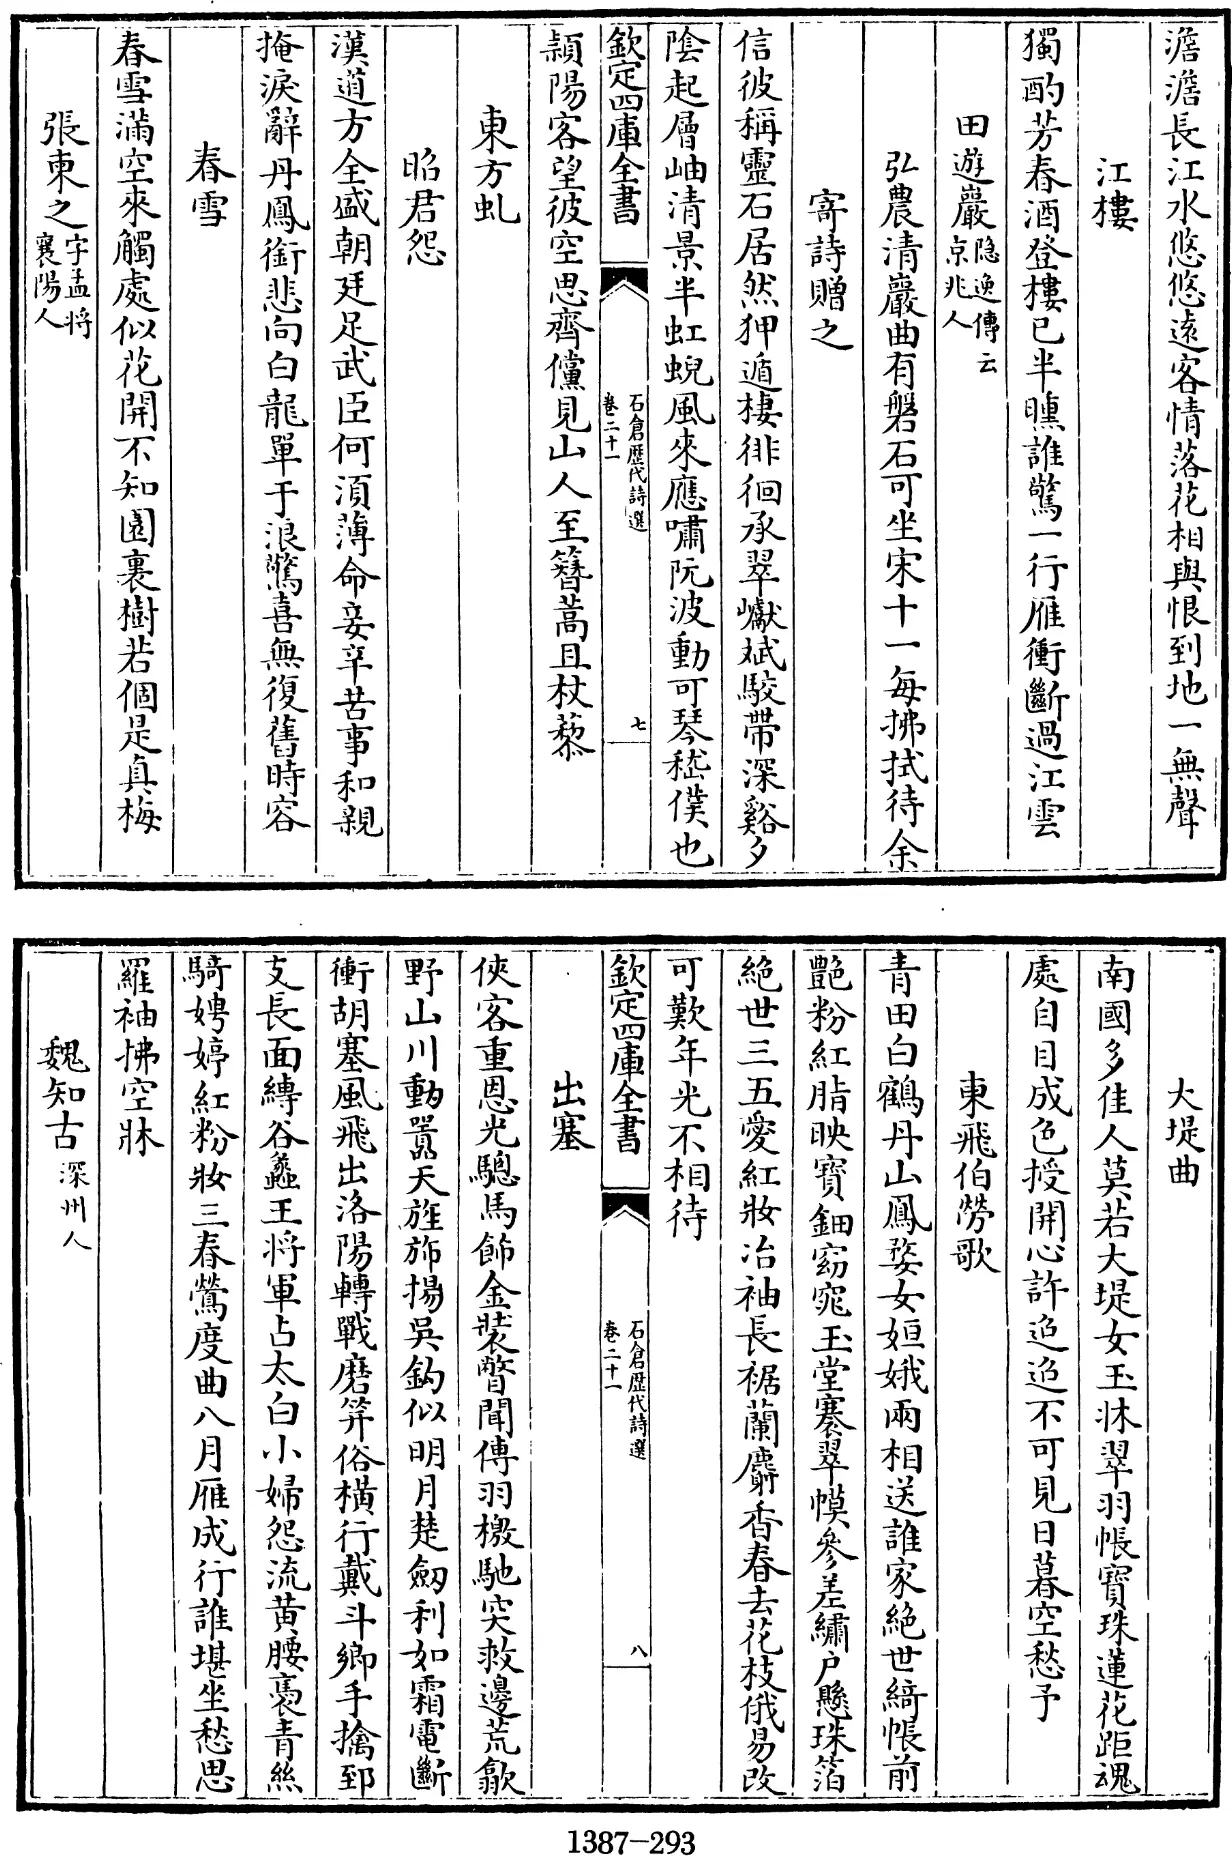 澹澹長江水悠悠遠客情落花相與恨到地一無聲
江樓
獨酌芳春酒登樓已半曛誰驚一行雁衝斷過江雲
田遊巖隐逸傳云京兆人
弘農清巖曲有磐石可坐宋十一每拂拭待余
寄詩贈之
信彼稱靈石居然狎遁棲徘徊承翠巘斌駮帶深谿夕
陰起層岫清景半虹蜺風來應嘯阮波動可琴嵇僕也
欽定四庫全書
石倉歷代詩選
卷二十一
七
潁陽客望彼空思齊儻見山人至簪蒿且杖藜
東方虬
昭君怨
漢道方全盛朝廷足武臣何湏薄命妾辛苦事和親
掩淚辭丹鳳銜悲向白龍單于浪驚喜無復舊時容
春雪
春雪滿空來觸處似花開不知園裏樹若個是真梅
張柬之字孟将襄陽人
大堤曲
南國多佳人莫若大堤女玉牀翠羽帳寶珠蓮花距魂
處自目成色授開心許迢迢不可見日暮空愁予
東飛伯勞歌
青田白鶴丹山鳳婺女姮娥兩相送誰家絶世綺帳前
艶粉紅脂映寶鈿窈窕玉堂褰翠幙參差繡户懸珠箔
絶世三五愛紅妝冶袖長裾蘭麝香春去花枝俄易改
可歎年光不相待
欽定四庫全書
石倉歷代詩選
卷二十一
八
出塞
俠客重恩光驄馬飾金裝瞥聞傳羽檄馳突救邊荒歙
野山川動囂天旌斾揚吳鈎似明月楚劔利如霜電斷
衝胡塞風飛出洛陽轉戰磨笄俗橫行戴斗鄉手擒郅
支長面縛谷蠡王将軍占太白小婦怨流黄騕褭青絲
騎娉婷紅粉妝三春鶯度曲八月雁成行誰堪坐愁思
羅袖拂空牀
魏知古深州人
1387-293